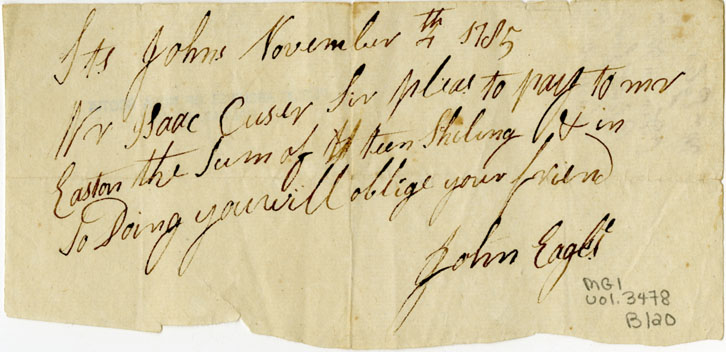 Sts Johns November th 7 1785
Mr Isaac Cuser Sir pleas to pay to mr
Easton the Sum of teen Shiling & in
So Doing you will oblige your friend
John Eagls
MG1
vol. 3478
B120